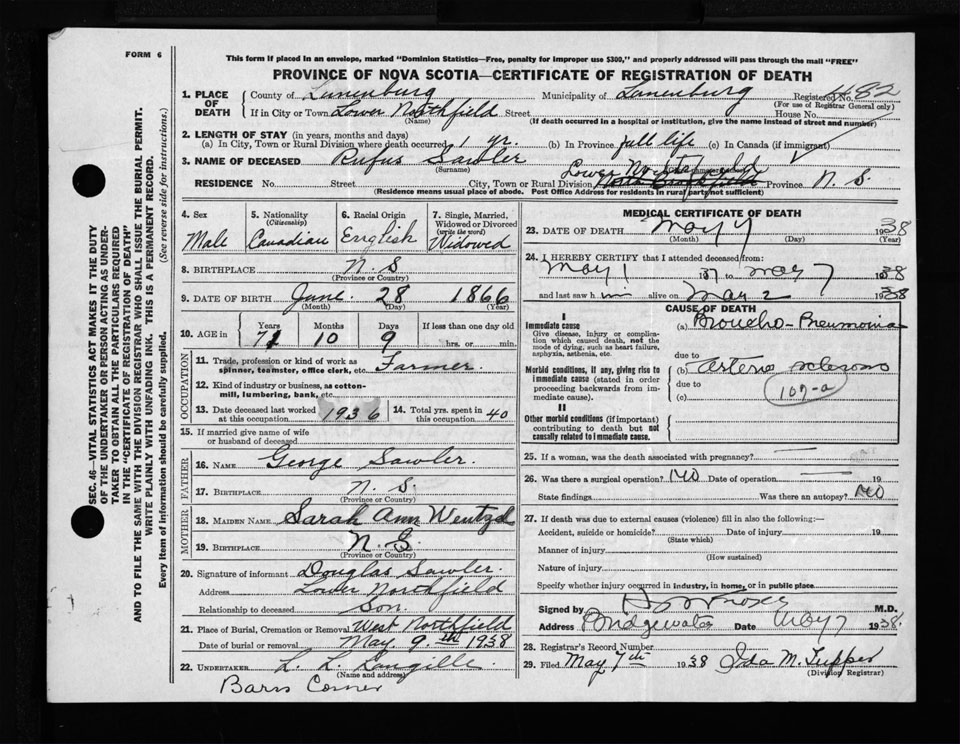 FORM 6
This form if placed in an envelope, marked "Dominion Statistics—Free, penalty for improper use $300," and properly addressed will pass through the mail "FREE"
PROVINCE OF NOVA SCOTIA—CERTIFICATE OF REGISTRATION OF DEATH
SEC. 46—VITAL STATISTICS ACT MAKES IT THE DUTY
OF THE UNDERTAKER OR PERSON ACTING AS UNDER-
TAKER TO OBTAIN ALL THE PARTICULARS REQUIRED
IN THE "CERTIFICATE OF REGISTRATION OF DEATH"
AND TO FILE THE SAME WITH THE DIVISION REGISTRAR WHO SHALL ISSUE THE BURIAL PERMIT.
WRITE PLAINLY WITH UNFADING INK. THIS IS A PERMANENT RECORD.
Every item of information should be carefully supplied. (See reverse side for instructions.)
1. PLACE OF DEATH County of Lunenburg Municipality of Lunenburg Registered No. 482
(For use of Registrar General only)
If in City or Town Lower Northfield Street House No.
(Name) (If death occurred in a hospital or institution, give the name instead of street and number)
2. LENGTH OF STAY (in years, months and days)
(a) In City, Town or Rural Division where death occurred 1 yr. (b) In Province full life (c) In Canada (if immigrant)
3. NAME OF DECEASED Rufus Sawler
(Surname)
Lower
RESIDENCE No. Street City, Town or Rural Division Province N. S.
(Residence means usual place of abode. Post Office Address for residents in rural parts not sufficient)
4. Sex Male
5. Nationality (Citizenship) Canadian
6. Racial Origin English
7. Single, Married, Widowed or Divorced (write the word) Widowed
8. BIRTHPLACE N. S
(Province or Country)
9. DATE OF BIRTH June 28 1866
(Month) (Day) (Year)
10. AGE in Years 71 Months 10 Days 9 If less than one day old
hrs. or min.
OCCUPATION
11. Trade, profession or kind of work as spinner, teamster, office clerk, etc. Farmer.
12. Kind of industry or business, as cotton-mill, lumbering, bank, etc.
13. Date deceased last worked at this occupation 1936 14. Total yrs. spent in this occupation 40
15. If married give name of wife or husband of deceased
FATHER
16. NAME George Sawler.
17. BIRTHPLACE N. S.
(Province or Country)
MOTHER
18. MAIDEN NAME Sarah Ann Wentzel
19. BIRTHPLACE N. S.
(Province or Country)
20. Signature of informant Douglas Sawler.
Address Lower Northfield
Relationship to deceased Son.
21. Place of Burial, Cremation or Removal West Northfield
Date of burial or removal May 9.th 1938
22. UNDERTAKER L. L. Langille
(Name and address)
Barss Corner
MEDICAL CERTIFICATE OF DEATH
23. DATE OF DEATH May 7 1938
(Month) (Day) (Year)
24. I HEREBY CERTIFY that I attended deceased from:
May 1 to May 7 1938
and last saw him alive on May 2 1938
CAUSE OF DEATH
I
Immediate cause
Give disease, injury or complication which caused death, not the mode of dying, such as heart failure, asphyxia, asthenia, etc.
(a) Broncho-Pneumonia
due to
Morbid conditions, if any, giving rise to immediate cause (stated in order proceeding backwards from immediate cause).
(b) Arterio sclerosis
due to
(c) 107-a
II
Other morbid conditions (if important) contributing to death but not causally related to immediate cause.
25. If a woman, was the death associated with pregnancy?
26. Was there a surgical operation? NO Date of operation 19
State findings Was there an autopsy? NO
27. If death was due to external causes (violence) fill in also the following:—
Accident, suicide or homicide? Date of injury 19
(State which)
Manner of injury
(How sustained)
Nature of injury
Specify whether injury occurred in industry, in home, or in public place
Signed by M.D.
Address Bridgewater Date May 7 1938.
28. Registrar's Record Number
29. Filed May 7th 1938 Ida M. Tupper
(Division Registrar)